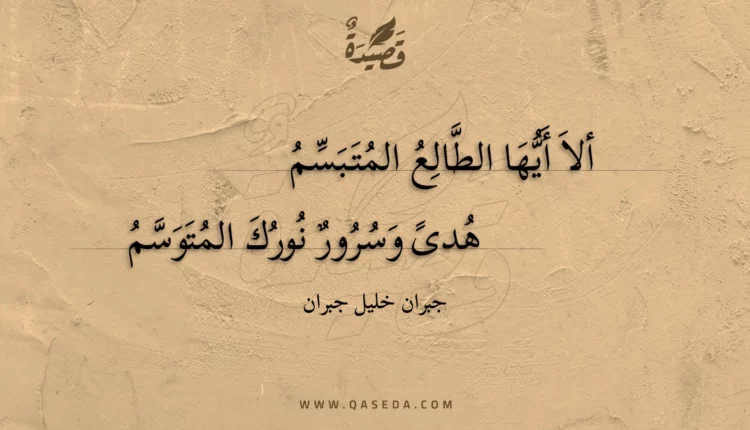 قَصِيدَةٌ
ألاَ أَيُّهَا الطَّالِعُ المُتَبَسِّمُ
هُدىً وَسُرُورٌ نُورُكَ المُتَوَسَّمُ
جبران خليل جبران
WWW.QASEDA.COM